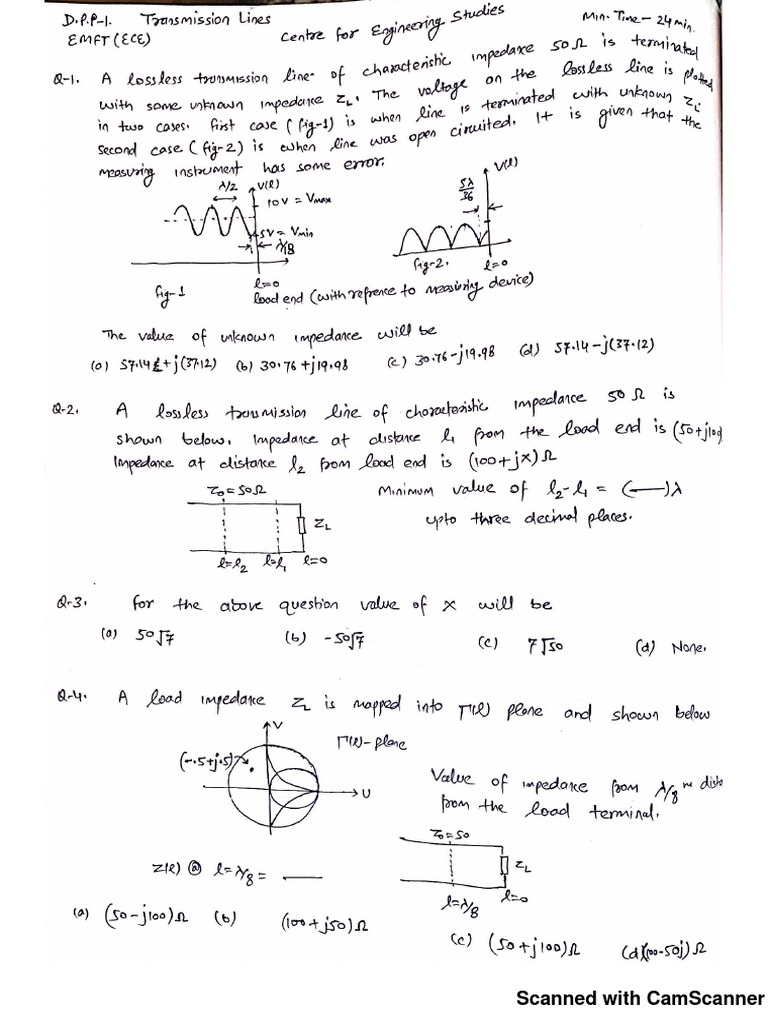 D.P.P-1. Transmission Lines
Min. Time - 24 min.
EMFT (ECE)
Centre for Engineering Studies
Q-1. A lossless transmission line of characteristic impedance 50Ω is terminated
with some unknown impedance ZL. The voltage on the lossless line is plotted
in two cases. First case (fig-1) is when line is terminated with unknown ZL
second case (fig-2) is when line was open circuited. It is given that the
measuring instrument has some error.
λ/2
V(l)
10V = Vmax
5V = Vmin
λ/8
l=0
fig-1
load end (with refrence to measuring device)
5λ/36
V(l)
fig-2.
l=0
The value of unknown impedance will be
(a) 57.14+j(37.12) (b) 30.76+j19.98 (c) 30.76-j19.98 (d) 57.14-j(37.12)
Q-2. A lossless transmission line of charactoristic impedance 50Ω is
shown below. Impedance at distance l1 from the load end is (50+j100)
Impedance at distance l2 from load end is (100+jx)Ω
Zo=50Ω
ZL
l=l2 l=l1 l=0
Minimum value of l2-l1 = (—)λ
upto three decimal places.
Q-3. for the above question value of x will be
(a) 50√7 (b) -50√7 (c) 7√50 (d) None.
Q-4. A load impedance ZL is mapped into Γ(l) plane and shown below
V
Γ(l)-plane
(-.5+j.5)
U
Value of impedance from λ/8 m dista
from the load terminal.
Zo=50
ZL
l=λ/8
l=0
Z(l) @ l=λ/8 = ___
(a) (50-j100)Ω (b) (100+j50)Ω
(c) (50+j100)Ω (d) (100-50j)Ω
Scanned with CamScanner